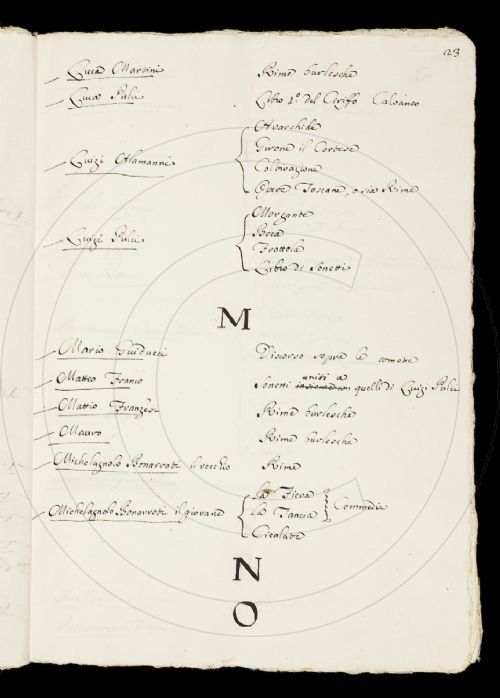 23
Luca Martini Rime burlesche
Luca Pulci Libro 1º. del Ciriffo Calvaneo
Avarchide
Girone il Cortese
Luigi Alamanni
Coltivazione
Opere Toscane, o sia Rime
Morgante
Beca
Luigi Pulci
Frottola
Libro di Sonetti
M
Mario Guiducci Discorso sopra le comete
uniti a
Matteo Franco Sonetti insieme con quelli di Luigi Pulci
Mattio Franzesi Rime burlesche
Mauro Rime burlesche
Michelagnolo Bonarroti il vecchio Rime
La Fiera
Michelagnolo Bonarroti il giovane La Tancia Commedie
Cicalate
N
O